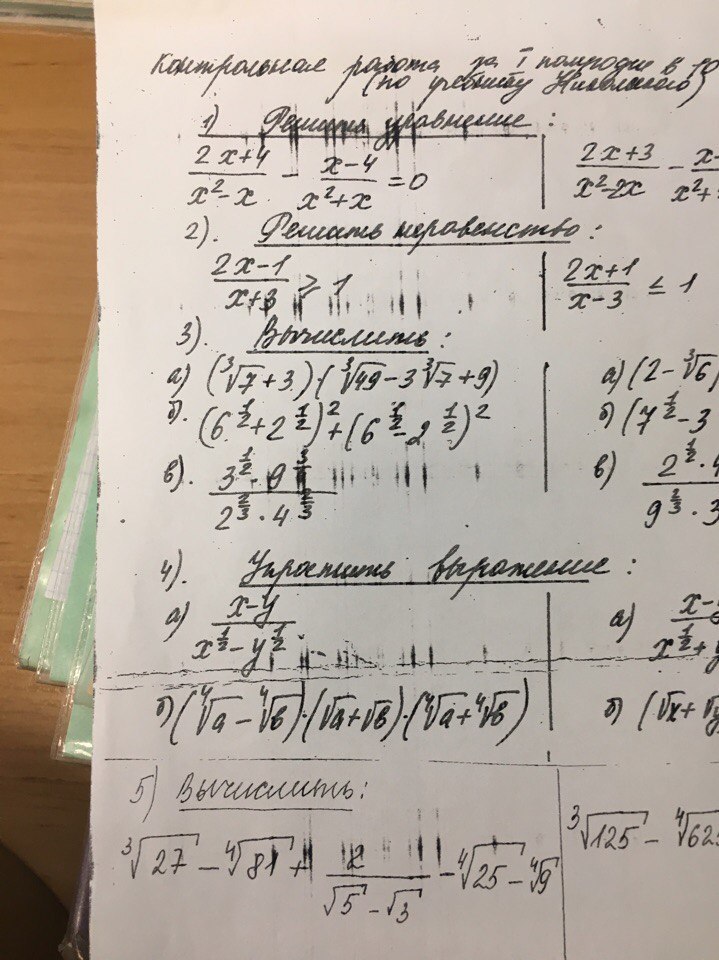 Контрольная работа за I полугодие в 10
(по учебнику Никольского)
1) Решить уравнение:
(2x+4)/(x²-x) - (x-4)/(x²+x) = 0
(2x+3)/(x²-2x) - x-
x²+
2). Решить неравенство:
(2x-1)/(x+3) ≥ 1
(2x+1)/(x-3) ≤ 1
3). Вычислить:
а) (∛7+3)·(∛49-3∛7+9)
а) (2-∛6)
б). (6^(1/2)+2^(1/2))²+(6^(1/2)-2^(1/2))²
б) (7^(1/2)-3
в). 3^(1/2)·9
2^(2/3)·4
в) 2^(1/2)·4
9^(2/3)·3
4). Упростить выражение:
а) (x-y)/(x^(1/2)-y^(1/2))
а) x-
x^(1/2)+y
б) (∜a-∜b)·(√a+√b)·(∜a+∜b)
б) (√x+√y
5) Вычислить:
∛27 - ∜81 + 2/(√5-√3) - ∜25 - ∜9
∛125 - ∜625